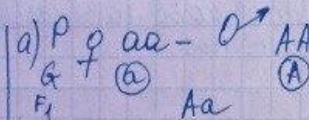 а) P ♀ aa - ♂ AA
G ⓐ Ⓐ
F₁ Aa